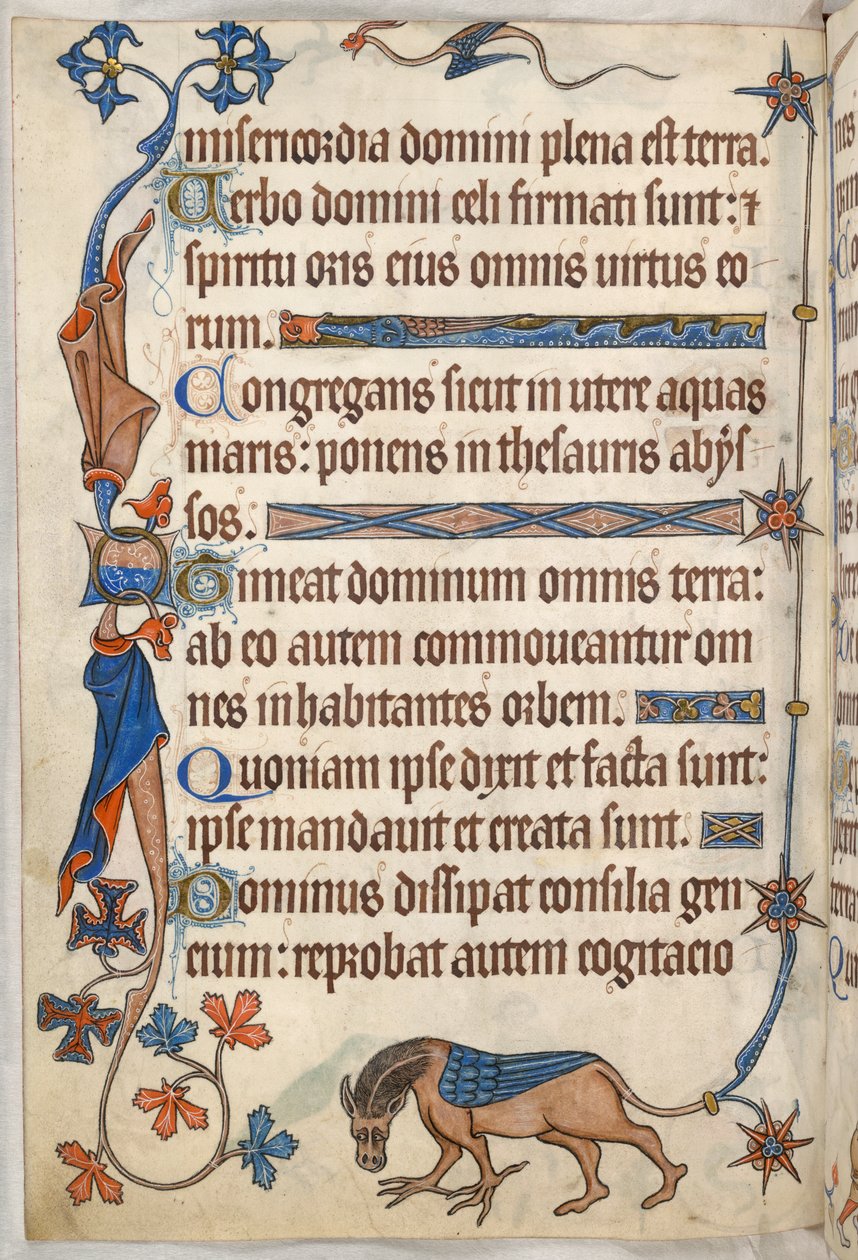 misericordia domini plena est terra.
Uerbo domini celi firmati sunt: ⁊
spiritu oris eius omnis uirtus eo
rum.
Congregans sicut in utere aquas
maris: ponens in thesauris abys
sos.
Timeat dominum omnis terra:
ab eo autem commoueantur om
nes inhabitantes orbem.
Quoniam ipse dixit et facta sunt:
ipse mandauit et creata sunt.
Dominus dissipat consilia gen
cium: reprobat autem cogitacio